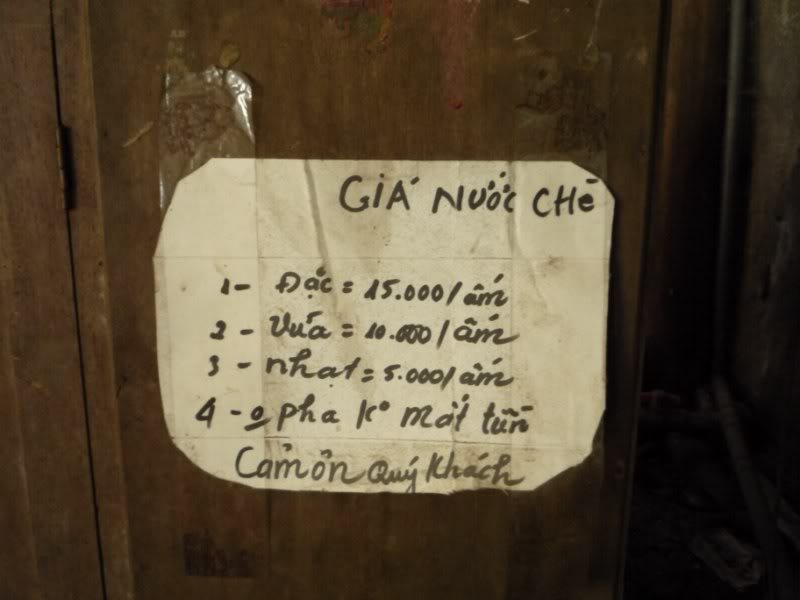 GIÁ NƯỚC CHÈ
1- Đặc = 15.000/ấm
2- Vừa = 10.000/ấm
3- nhạt = 5.000/ấm
4- o pha ko mất tiền
Cảm ơn Quý Khách